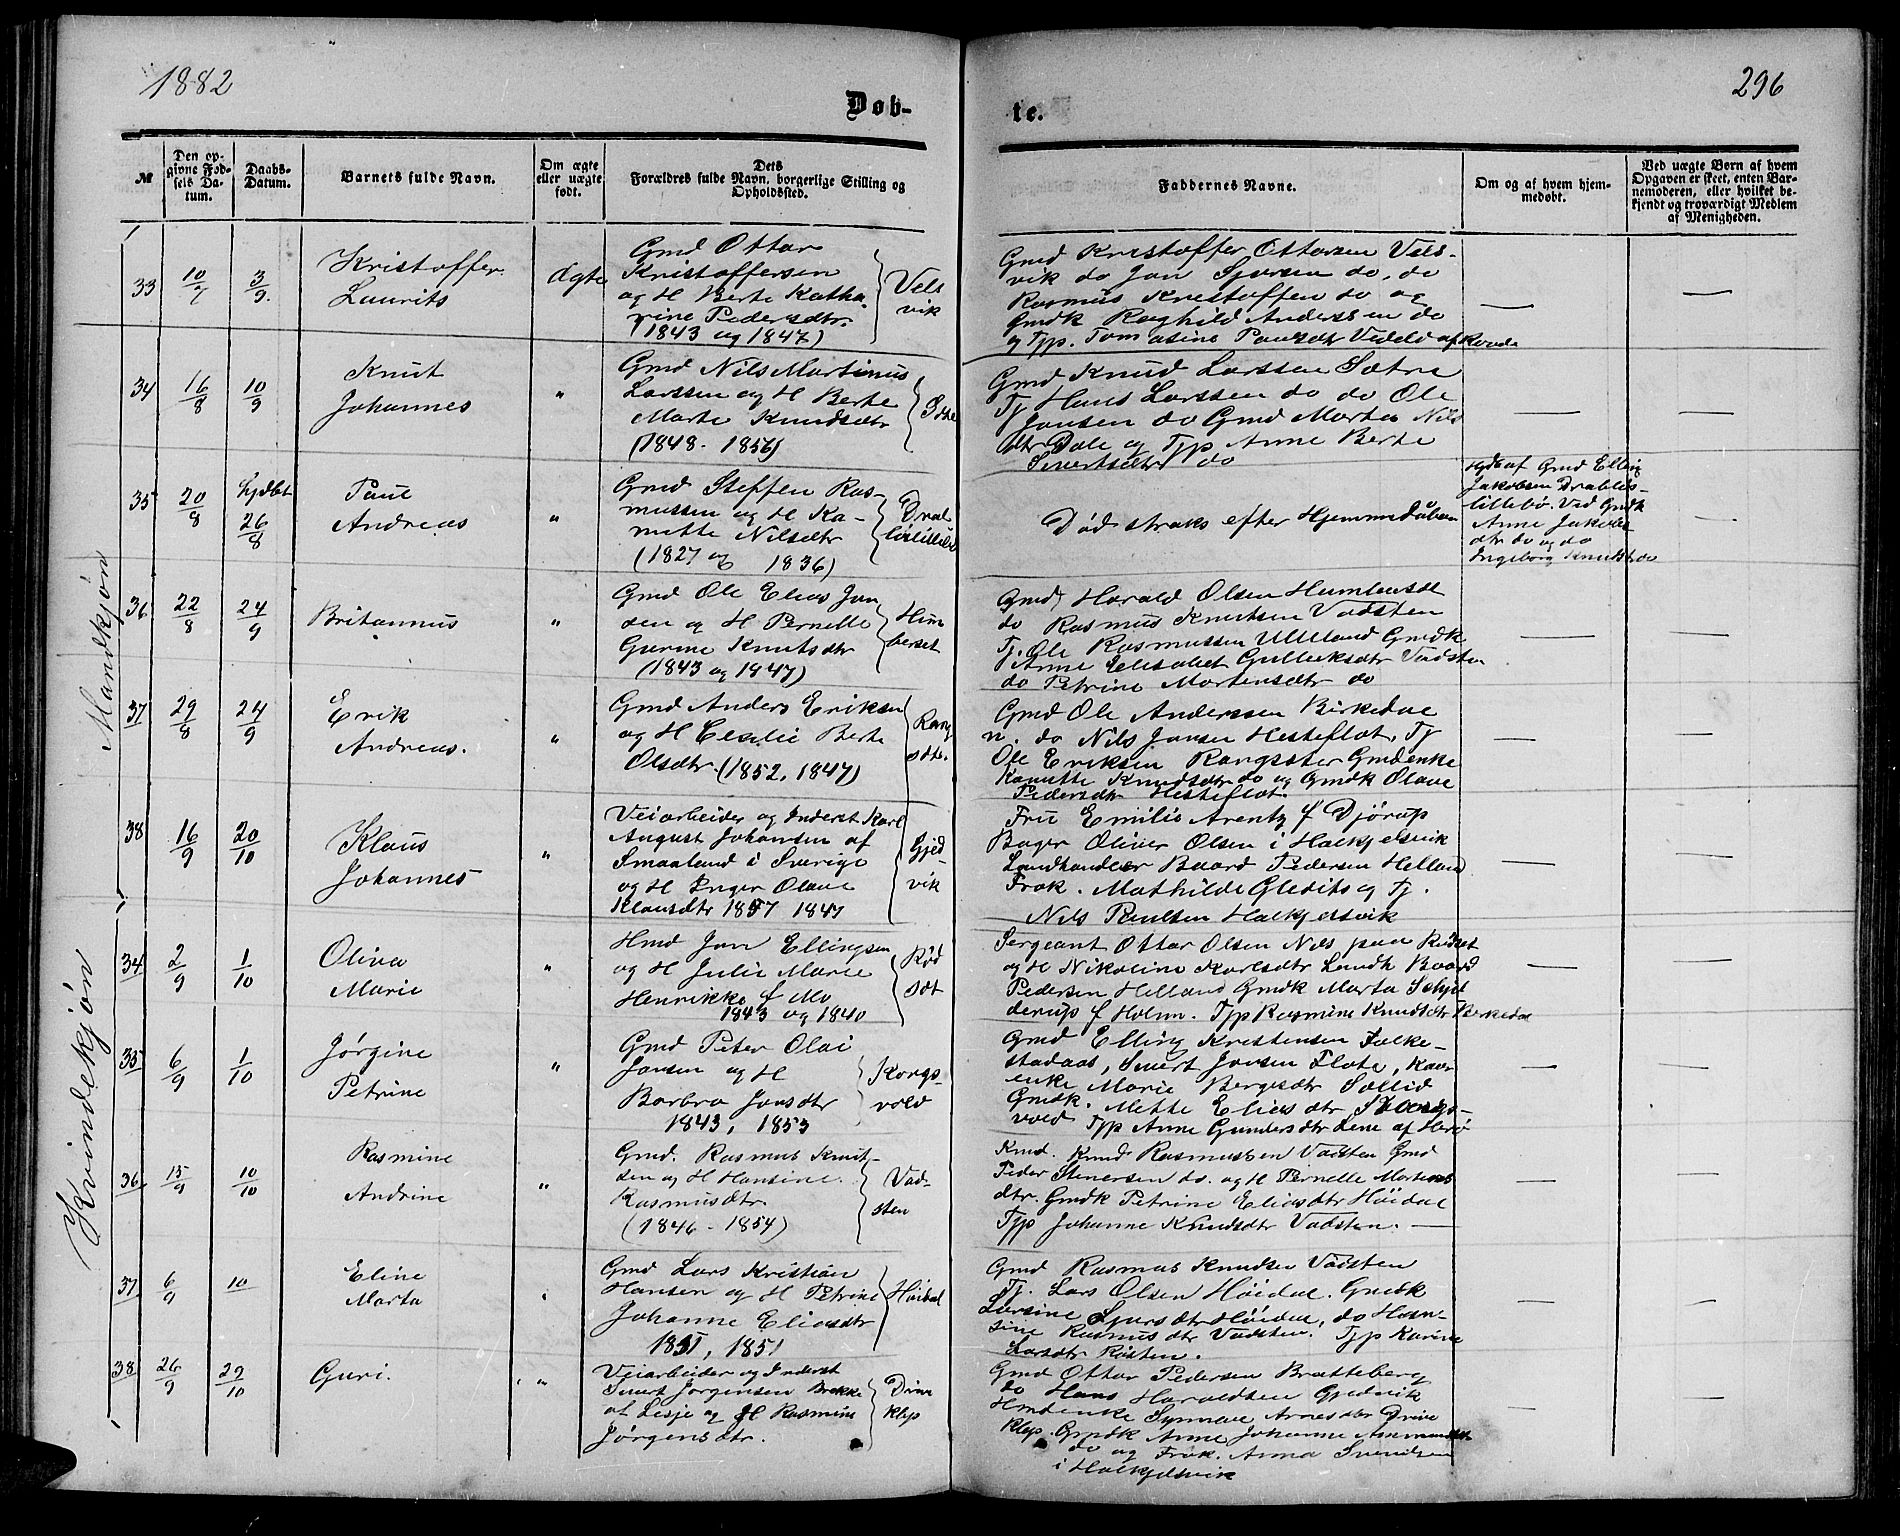 1882
296
Døb-
te.
№
Den op-
givne Fød-
sels Da-
tum.
Daabs-
Datum.
Barnets fulde Navn.
Om ægte
eller uægte
født.
Dets
Forældres fulde Navn, borgerlige Stilling og
Opholdssted.
Faddernes Navne.
Om og af hvem hjem-
medøbt.
Ved uægte Børn af hvem
Opgaven er skeet, enten Bar-
nemoderen, eller hvilket be-
kjendt og troværdigt Medlem
af Menigheden.
Mandkjøn
33
10/7
3/9.
Kristoffer
Laurits
ægte
Gmd Ottar
Kristoffersen
og H Berte Katha-
rine Pedersdtr.
(1843 og 1847)
Vels
vik
Gmd Kristoffer Ottarsen Vels-
vik do Jon Sjursen do, do
Rasmus Kristoffen do og
Gmdk Raghild Anderssen do
og Tjp. Tomasine Paulsdtr
—
—
34
16/8
10/9
Knut
Johannes
"
Gmd Nils Martinus
Larssen og H Berte
Marte Knudsdtr
(1848 - 1856)
Gmd Knud Larssen Sætre
Tj Hans Larssen do do Ole
Jansen do Gmd Marta Nils
dtr Dale og Tjp Anne Berte
Sivertsdtr do
—
—
35
20/8
hjdbt
26/8
Paul
Andreas
"
Gmd Steffen Ras-
mussen og H Ka-
mette Nilsdtr
(1827 og 1836)
Død straks efter Hjemmedåben
Hjd af Gmd Elling
Jakobsen Drabløs-
lillebø. Ved Gmdk
Anne Jakobs
dtr do og do
Ingeborg Knutsdtr do
—
36
22/8
24/9
Britannus
"
Gmd Ole Elias Jon
sen og H Pernelle
Gurine Knutsdtr
(1843 og 1847)
Hum
berset
Gmd Harald Olsen Humberset
do Rasmus Knutsen Vadsten
Tj. Ole Rasmussen Ulleland Gmdk
Anne Elisabet Gulleiksdtr Vadsten
do Petrine Mortensdtr do
—
—
37
29/8
24/9
Erik
Andreas.
"
Gmd Anders Eriksen
og H Cecilie Berte
Olsdtr (1852, 1847)
Rang
sæt.
Gmd Ole Anderssen Birkedal
n. do Nils Jansen Hesteflot, Tj
Ole Eriksen Rangsæter Gmdenke
Kanutte Knudsdtr do og Gmdk Olave
Pedersdtr Hesteflot
—
—
38
16/9
20/10
Klaus
Johannes
"
Veiarbeider og Inderst Karl
August Johansen af
Smaaland i Sverige
og H Inger Olave
Klausdtr 1857 1847
Gjed-
vik
Fru Emilie Arentz f Djørup
Bager Oliver Olsen i Halkjelsvik
Landhandler Baard Pedersen Helland
Frøk. Mathilde Gleditsg Tj.
Nils Paulsen Halkjelsvik
—
—
Kvindekjøn
34
2/9
1/10
Olina
Marie
"
Hmd Jon Ellingsen
og H Julie Marie
Henrikke f Mo
1843 og 1840
Rød
sæt
Sergeant Ottar Olsen Nils paa Rødset
og H Nikoline Karlsdtr Landh Baard
Pedersen Helland Gmdk Marta Schjel
derup f Holm. Tjp Rasmine Knudsdtr Birkedal
—
—
35
6/9
1/10
Jørgine
Petrine
"
Gmd Peter Olai
Jonsen og H
Barbra Jonsdtr
1843, 1853
Korgs-
vold
Gmd Elling Kristensen Folke-
stadaas, Sivert Jonsen Flote, Kaar
enke Marie Bergesdtr Sollid
Gmdk. Mette Eliasdtr Korgs-
vold Tjp Anne Gundersdtr Lene af Herø
—
—
36
15/9
10/10
Rasmine
Andrine
"
Gmd. Rasmus Knut-
sen og H Hansine.
Rasmusdtr.
(1846 - 1854)
Vad-
sten
Kmd. Knud Rasmussen Vadsten Gmd
Peder Stenersen do. og H Pernelle Mortens
dtr. Gmdk Petrine Eliasdtr Höidal
Tjp Johanne Knudsdtr Vadsten. —
—
—
37
6/9
10
Eline
Marta
"
Gmd Lars Kristian
Hansen og H Petrine
Johanne Eliasdtr
1851, 1851
Høidal
Gmd Rasmus Knudsen Vadsten
Tj. Lars Olsen Höidal. Gmdk
Larsine Sjursdtr Höidal, do Han-
sine Rasmusdtr Vadsten. Tjp Karine
Larsdtr Røsten.
—
—
38
26/9
29/10
Guri.
"
Veiarbeider og Inderst
Sivert Jørgensen Brekke
af Lesje og H Rasmine
Jørgensdtr.
Drive
klep
Gmd Ottar Pedersen Bratteberg
do Hans Haraldsen Gjedvik
Hmdenke Synneve Arnesdtr Drive
klep. Gmdk Anne Johanne Ammundsdtr
do og Frøk. Anna Svendsen
i Halkjelsvik
—
—